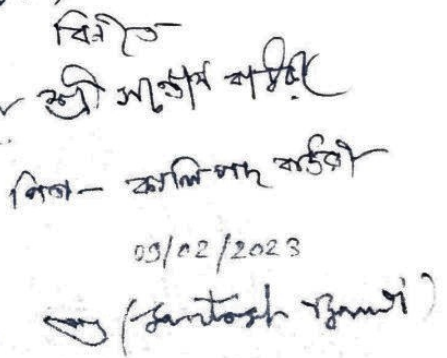 বিনীত
শ্রী সন্তোষ বাউরী
পিতা - কালিপদ বাউরী
09/02/2023
(Santosh Bauri)